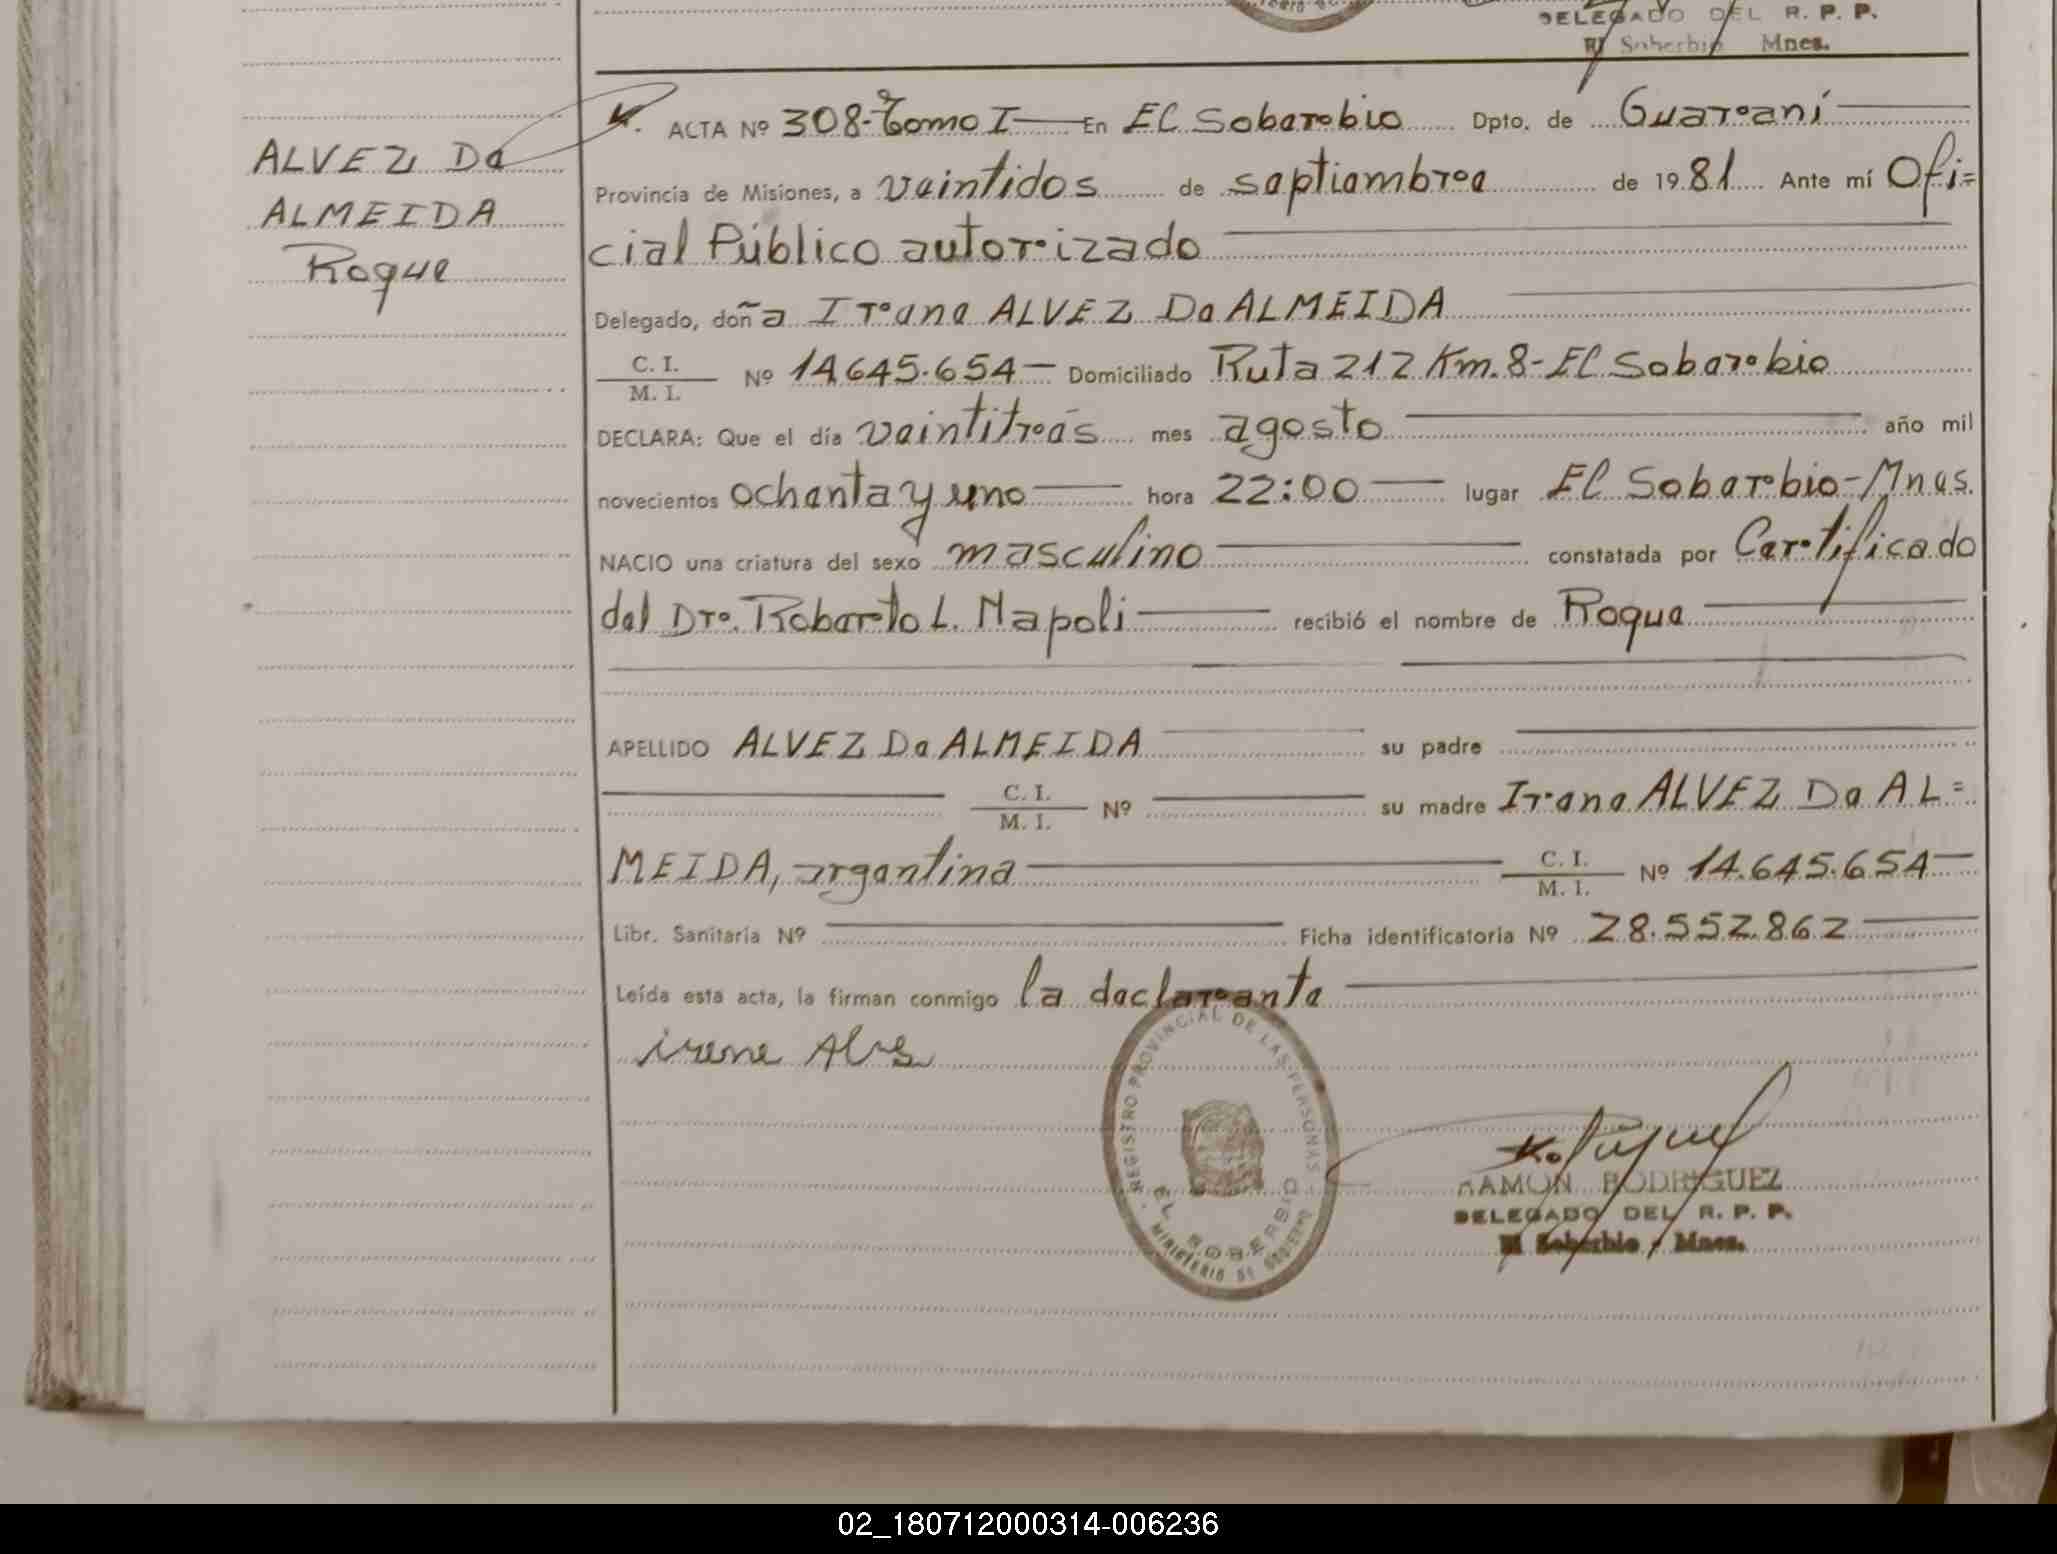 DELEGADO DEL R. P. P.
El Soberbio Mnes.
ACTA Nº 308-Tomo I En El Soberbio Dpto. de Guaraní
ALVEZ De
ALMEIDA
Roque
Provincia de Misiones, a veintidos de septiembre de 1981 Ante mí Ofi=
cial Público autorizado
Delegado, doña Irene ALVEZ De ALMEIDA
C. I.
M. I. Nº 14.645.654- Domiciliado Ruta 212 Km. 8-El Soberbio
DECLARA: Que el día veintitrés mes agosto año mil
novecientos ochenta y uno hora 22:00 lugar El Soberbio-Mnes.
NACIO una criatura del sexo masculino constatada por Certificado
del Dr. Roberto L. Napoli recibió el nombre de Roque
APELLIDO ALVEZ De ALMEIDA su padre
C. I.
M. I. Nº su madre Irene ALVEZ De AL=
MEIDA, argentina C. I.
M. I. Nº 14.645.654-
Libr. Sanitaria Nº Ficha identificatoria Nº 28.552.862
Leída esta acta, la firman conmigo la declarante
irene Alves
REGISTRO PROVINCIAL DE LAS PERSONAS
EL SOBERBIO
MINISTERIO DE GOBIERNO
RAMON RODRIGUEZ
DELEGADO DEL R. P. P.
El Soberbio - Mnes.
02_180712000314-006236